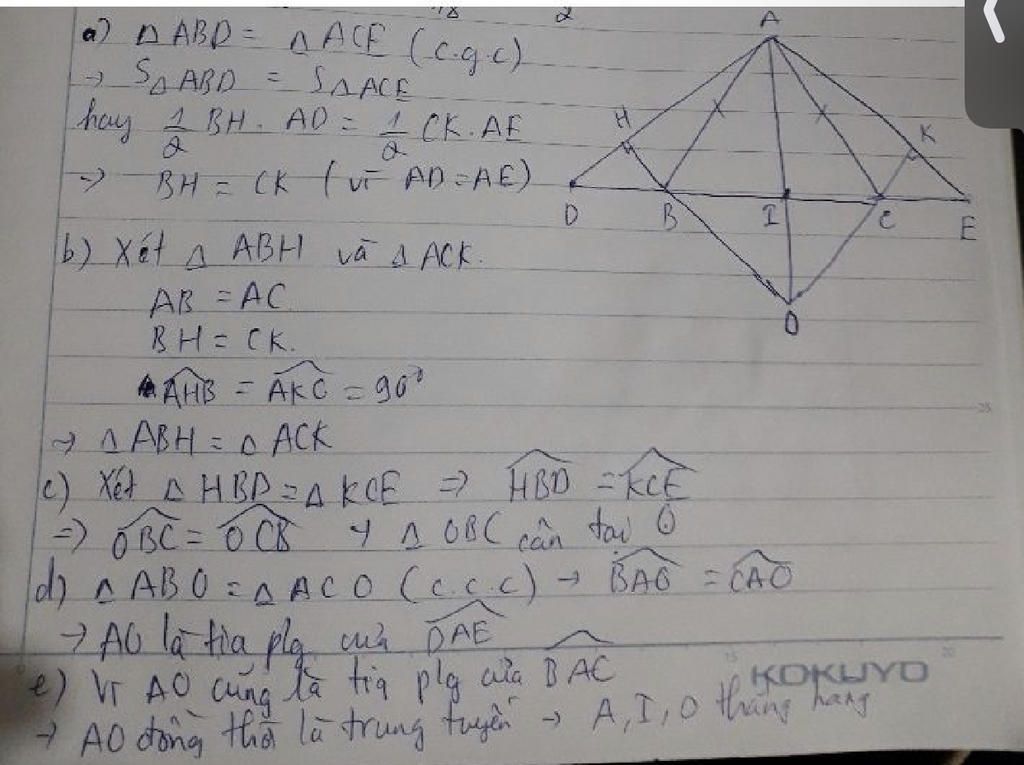 a) Δ ABD = Δ ACE (c.g.c)
→ SΔ ABD = SΔ ACE
hay 1/2 BH. AD = 1/2 CK. AE
→ BH = CK (vì AD=AE)
b) Xét Δ ABH và Δ ACK.
AB = AC
BH = CK.
AHB = AKC = 90°
→ Δ ABH = Δ ACK
c) Xét Δ HBD = Δ KCE ⇒ HBD = KCE
⇒ OBC = OCB → Δ OBC cân tại O
d) Δ ABO = Δ ACO (c.c.c) → BAO = CAO
→ AO là tia plg của DAE
e) Vì AO cũng là tia plg của BAC
→ AO đồng thời là trung tuyến → A, I, O thẳng hàng
A
H
K
D
B
I
C
E
O
25
15
20
KOKUYO